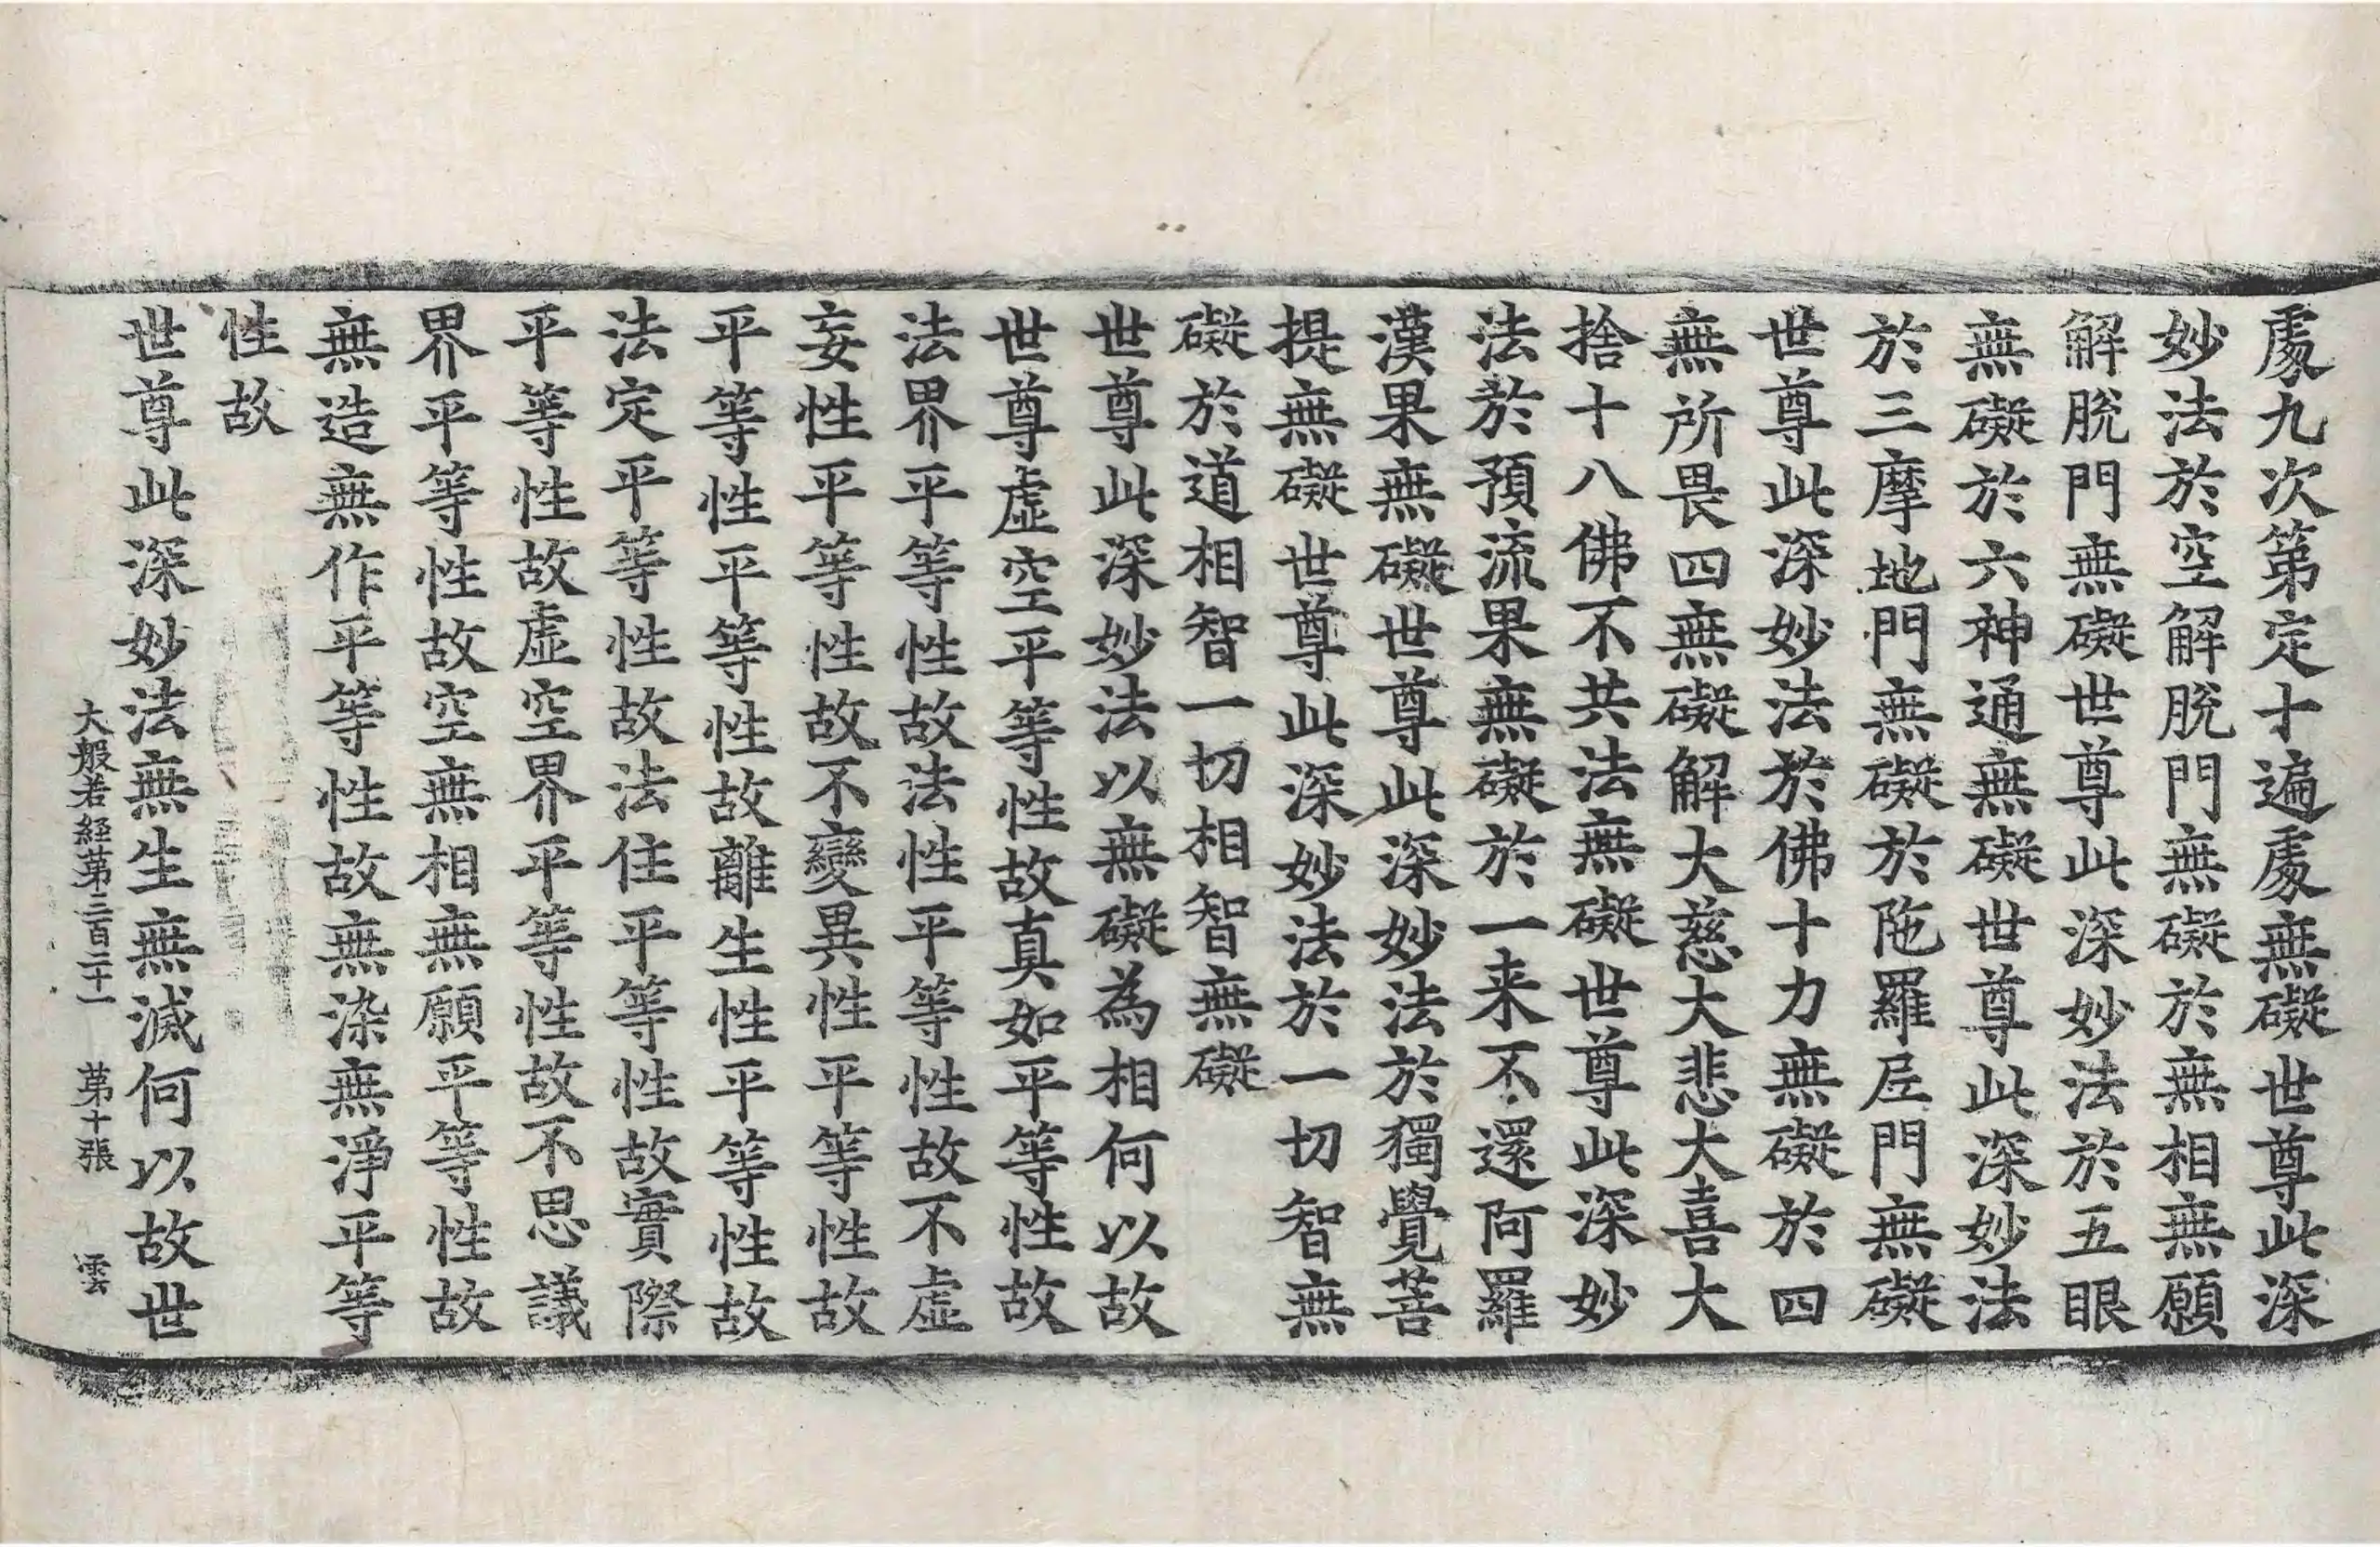 處九次第定十遍處無礙世尊此深
妙法於空解脫門無礙於無相無願
解脫門無礙世尊此深妙法於五眼
無礙於六神通無礙世尊此深妙法
於三摩地門無礙於陁羅尼門無礙
世尊此深妙法於佛十力無礙於四
無所畏四無礙解大慈大悲大喜大
捨十八佛不共法無礙世尊此深妙
法於預流果無礙於一来不還阿羅
漢果無礙世尊此深妙法於獨覺菩
提無礙世尊此深妙法於一切智無
礙於道相智一切相智無礙
世尊此深妙法以無礙為相何以故
世尊虛空平等性故真如平等性故
法界平等性故法性平等性故不虛
妄性平等性故不變異性平等性故
平等性平等性故離生性平等性故
法定平等性故法住平等性故實際
平等性故虛空界平等性故不思議
界平等性故空無相無願平等性故
無造無作平等性故無染無淨平等
性故
世尊此深妙法無生無滅何以故世
大般若経苐三百二十一 苐十張 雲